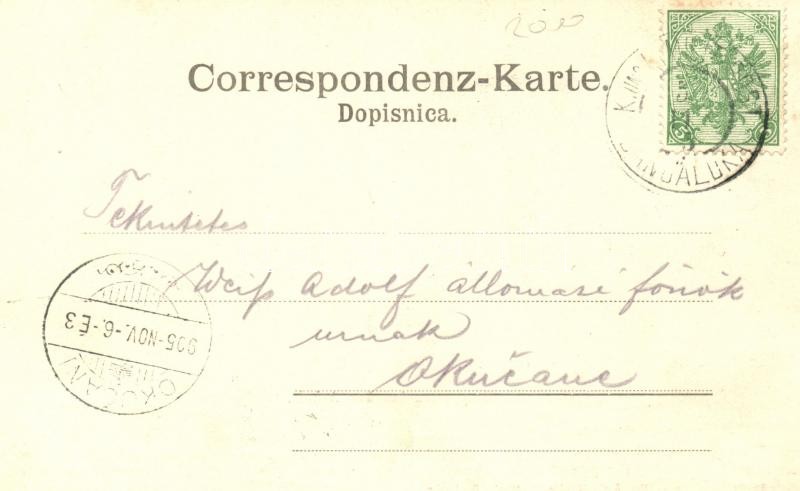 20
Correspondenz-Karte.
Dopisnica.
Tekintetes
Weiß Adolf állomási főnök
urnak
Okučane
905-NOV.-6.-É3
5